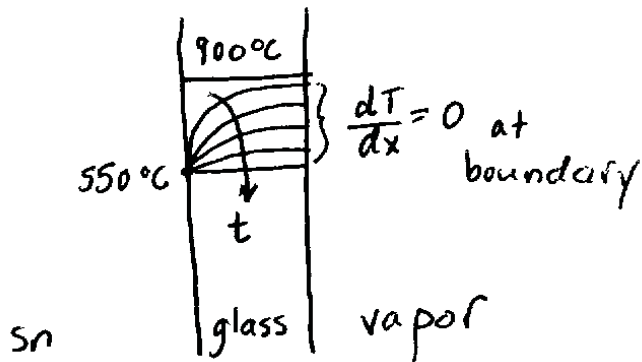 900°C
dT/dx = 0 at
boundary
550°C
t
sn glass vapor